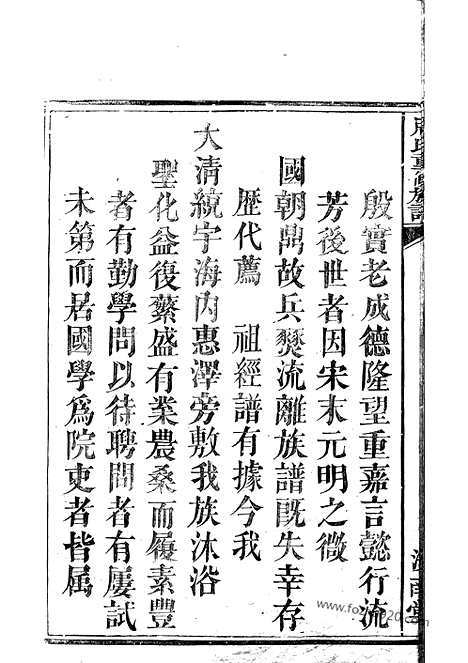 殷實老成德隆望重嘉言懿行流
芳後世者因宋末元明之微
國朝鼎故兵燹流離族譜既失幸存
歷代薦　祖經譜有據今我
大清統宇海內惠澤旁敷我族沐浴
聖化益復蘩盛有業農桑而履素豐
者有勤學問以待聘問者有屢試
未第而居國學為院吏者皆属